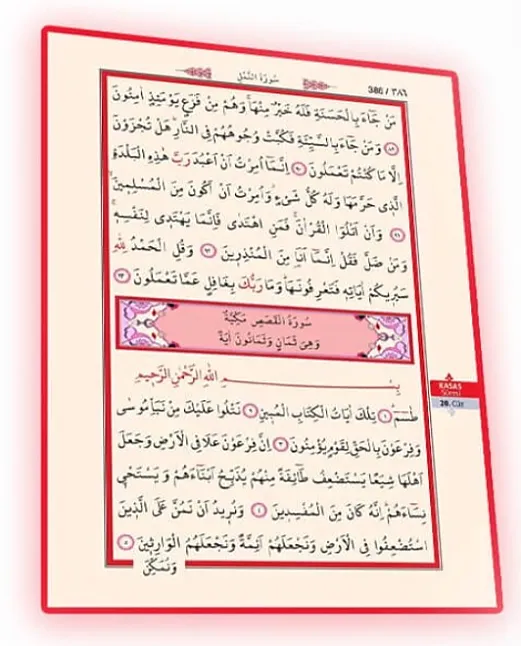 سُورَةُ النَّمْلِ
386 / ٣٨٦
مَنْ جَٓاءَ بِالْحَسَنَةِ فَلَهُ خَيْرٌ مِنْهَاۚ وَهُمْ مِنْ فَزَعٍ يَوْمَئِذٍ اٰمِنُونَ
﴿٨٩﴾ وَمَنْ جَٓاءَ بِالسَّيِّئَةِ فَكُبَّتْ وُجُوهُهُمْ فِي النَّارِۜ هَلْ تُجْزَوْنَ
اِلَّا مَا كُنْتُمْ تَعْمَلُونَ ﴿٩٠﴾ اِنَّمَٓا اُمِرْتُ اَنْ اَعْبُدَ رَبَّ هٰذِهِ الْبَلْدَةِ
الَّذ۪ي حَرَّمَهَا وَلَهُ كُلُّ شَيْءٍۘ وَاُمِرْتُ اَنْ اَكُونَ مِنَ الْمُسْلِم۪ينَۙ
﴿٩١﴾ وَاَنْ اَتْلُوَا الْقُرْاٰنَۚ فَمَنِ اهْتَدٰى فَاِنَّمَا يَهْتَد۪ي لِنَفْسِه۪ۚ
وَمَنْ ضَلَّ فَقُلْ اِنَّمَٓا اَنَا۬ مِنَ الْمُنْذِر۪ينَ ﴿٩٢﴾ وَقُلِ الْحَمْدُ لِلّٰهِ
سَيُر۪يكُمْ اٰيَاتِه۪ فَتَعْرِفُونَهَاۜ وَمَا رَبُّكَ بِغَافِلٍ عَمَّا تَعْمَلُونَ ﴿٩٣﴾
سُورَةُ الْقَصَصِ مَكِّيَّةٌ
وَهِيَ ثَمَانٍ وَثَمَانُونَ اٰيَةً
بِسْمِ اللّٰهِ الرَّحْمٰنِ الرَّح۪يمِ
طٰسٓمٓ ﴿١﴾ تِلْكَ اٰيَاتُ الْكِتَابِ الْمُب۪ينِ ﴿٢﴾ نَتْلُوا عَلَيْكَ مِنْ نَبَأِ مُوسٰى
وَفِرْعَوْنَ بِالْحَقِّ لِقَوْمٍ يُؤْمِنُونَ ﴿٣﴾ اِنَّ فِرْعَوْنَ عَلَا فِي الْاَرْضِ وَجَعَلَ
اَهْلَهَا شِيَعًا يَسْتَضْعِفُ طَٓائِفَةً مِنْهُمْ يُذَبِّحُ اَبْنَٓاءَهُمْ وَيَسْتَحْي۪
نِسَٓاءَهُمْۜ اِنَّهُ كَانَ مِنَ الْمُفْسِد۪ينَ ﴿٤﴾ وَنُر۪يدُ اَنْ نَمُنَّ عَلَى الَّذ۪ينَ
اسْتُضْعِفُوا فِي الْاَرْضِ وَنَجْعَلَهُمْ اَئِمَّةً وَنَجْعَلَهُمُ الْوَارِث۪ينَۙ ﴿٥﴾
وَنُمَكِّنَ
KASAS
Sûresi
20. Cüz